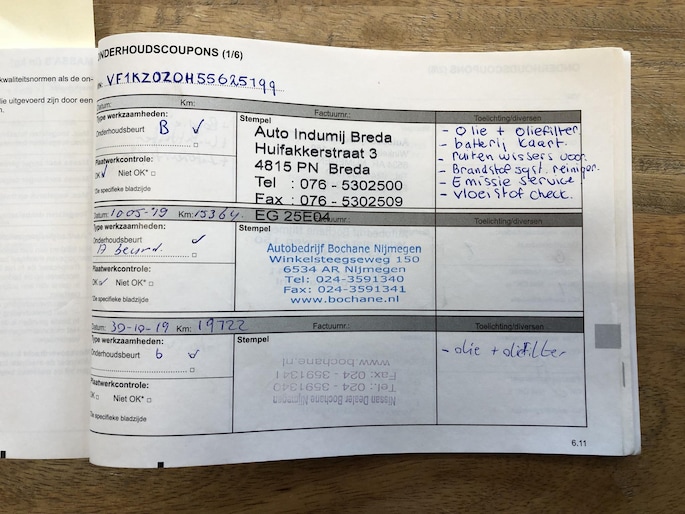 kwaliteitsnormen als de on-
lie uitgevoerd zijn door een
ONDERHOUDSCOUPONS (1/6)
VF1KZ0Z0H55625799
Datum: Km: Factuurnr.: Toelichting/diversen
Type werkzaamheden:
Onderhoudsbeurt B ✓
Plaatwerkcontrole:
OK Niet OK*
*Zie specifieke bladzijde
Stempel
Auto Indumij Breda
Huifakkerstraat 3
4815 PN Breda
Tel : 076 - 5302500
Fax : 076 - 5302509
EG 25E04
- Olie + oliefilter
- batterij kaart.
- ruiten wissers voor.
- Brandstof syst. reiniger.
- Emissie service
- vloeistof check.
Datum: 10-05-'19 Km: 15364 Toelichting/diversen
Type werkzaamheden:
Onderhoudsbeurt ✓
A beurt.
Plaatwerkcontrole:
OK Niet OK*
*Zie specifieke bladzijde
Stempel
Autobedrijf Bochane Nijmegen
Winkelsteegseweg 150
6534 AR Nijmegen
Tel: 024-3591340
Fax: 024-3591341
www.bochane.nl
Datum: 30-10-19 Km: 19722 Factuurnr.: Toelichting/diversen
Type werkzaamheden:
Onderhoudsbeurt b ✓
Plaatwerkcontrole:
OK Niet OK*
*Zie specifieke bladzijde
Stempel
www.bochane.nl
Fax: 024 - 3591341
Tel.: 024 - 3591340
Nissan Dealer Bochane Nijmegen
- olie + oliefilter
6.11